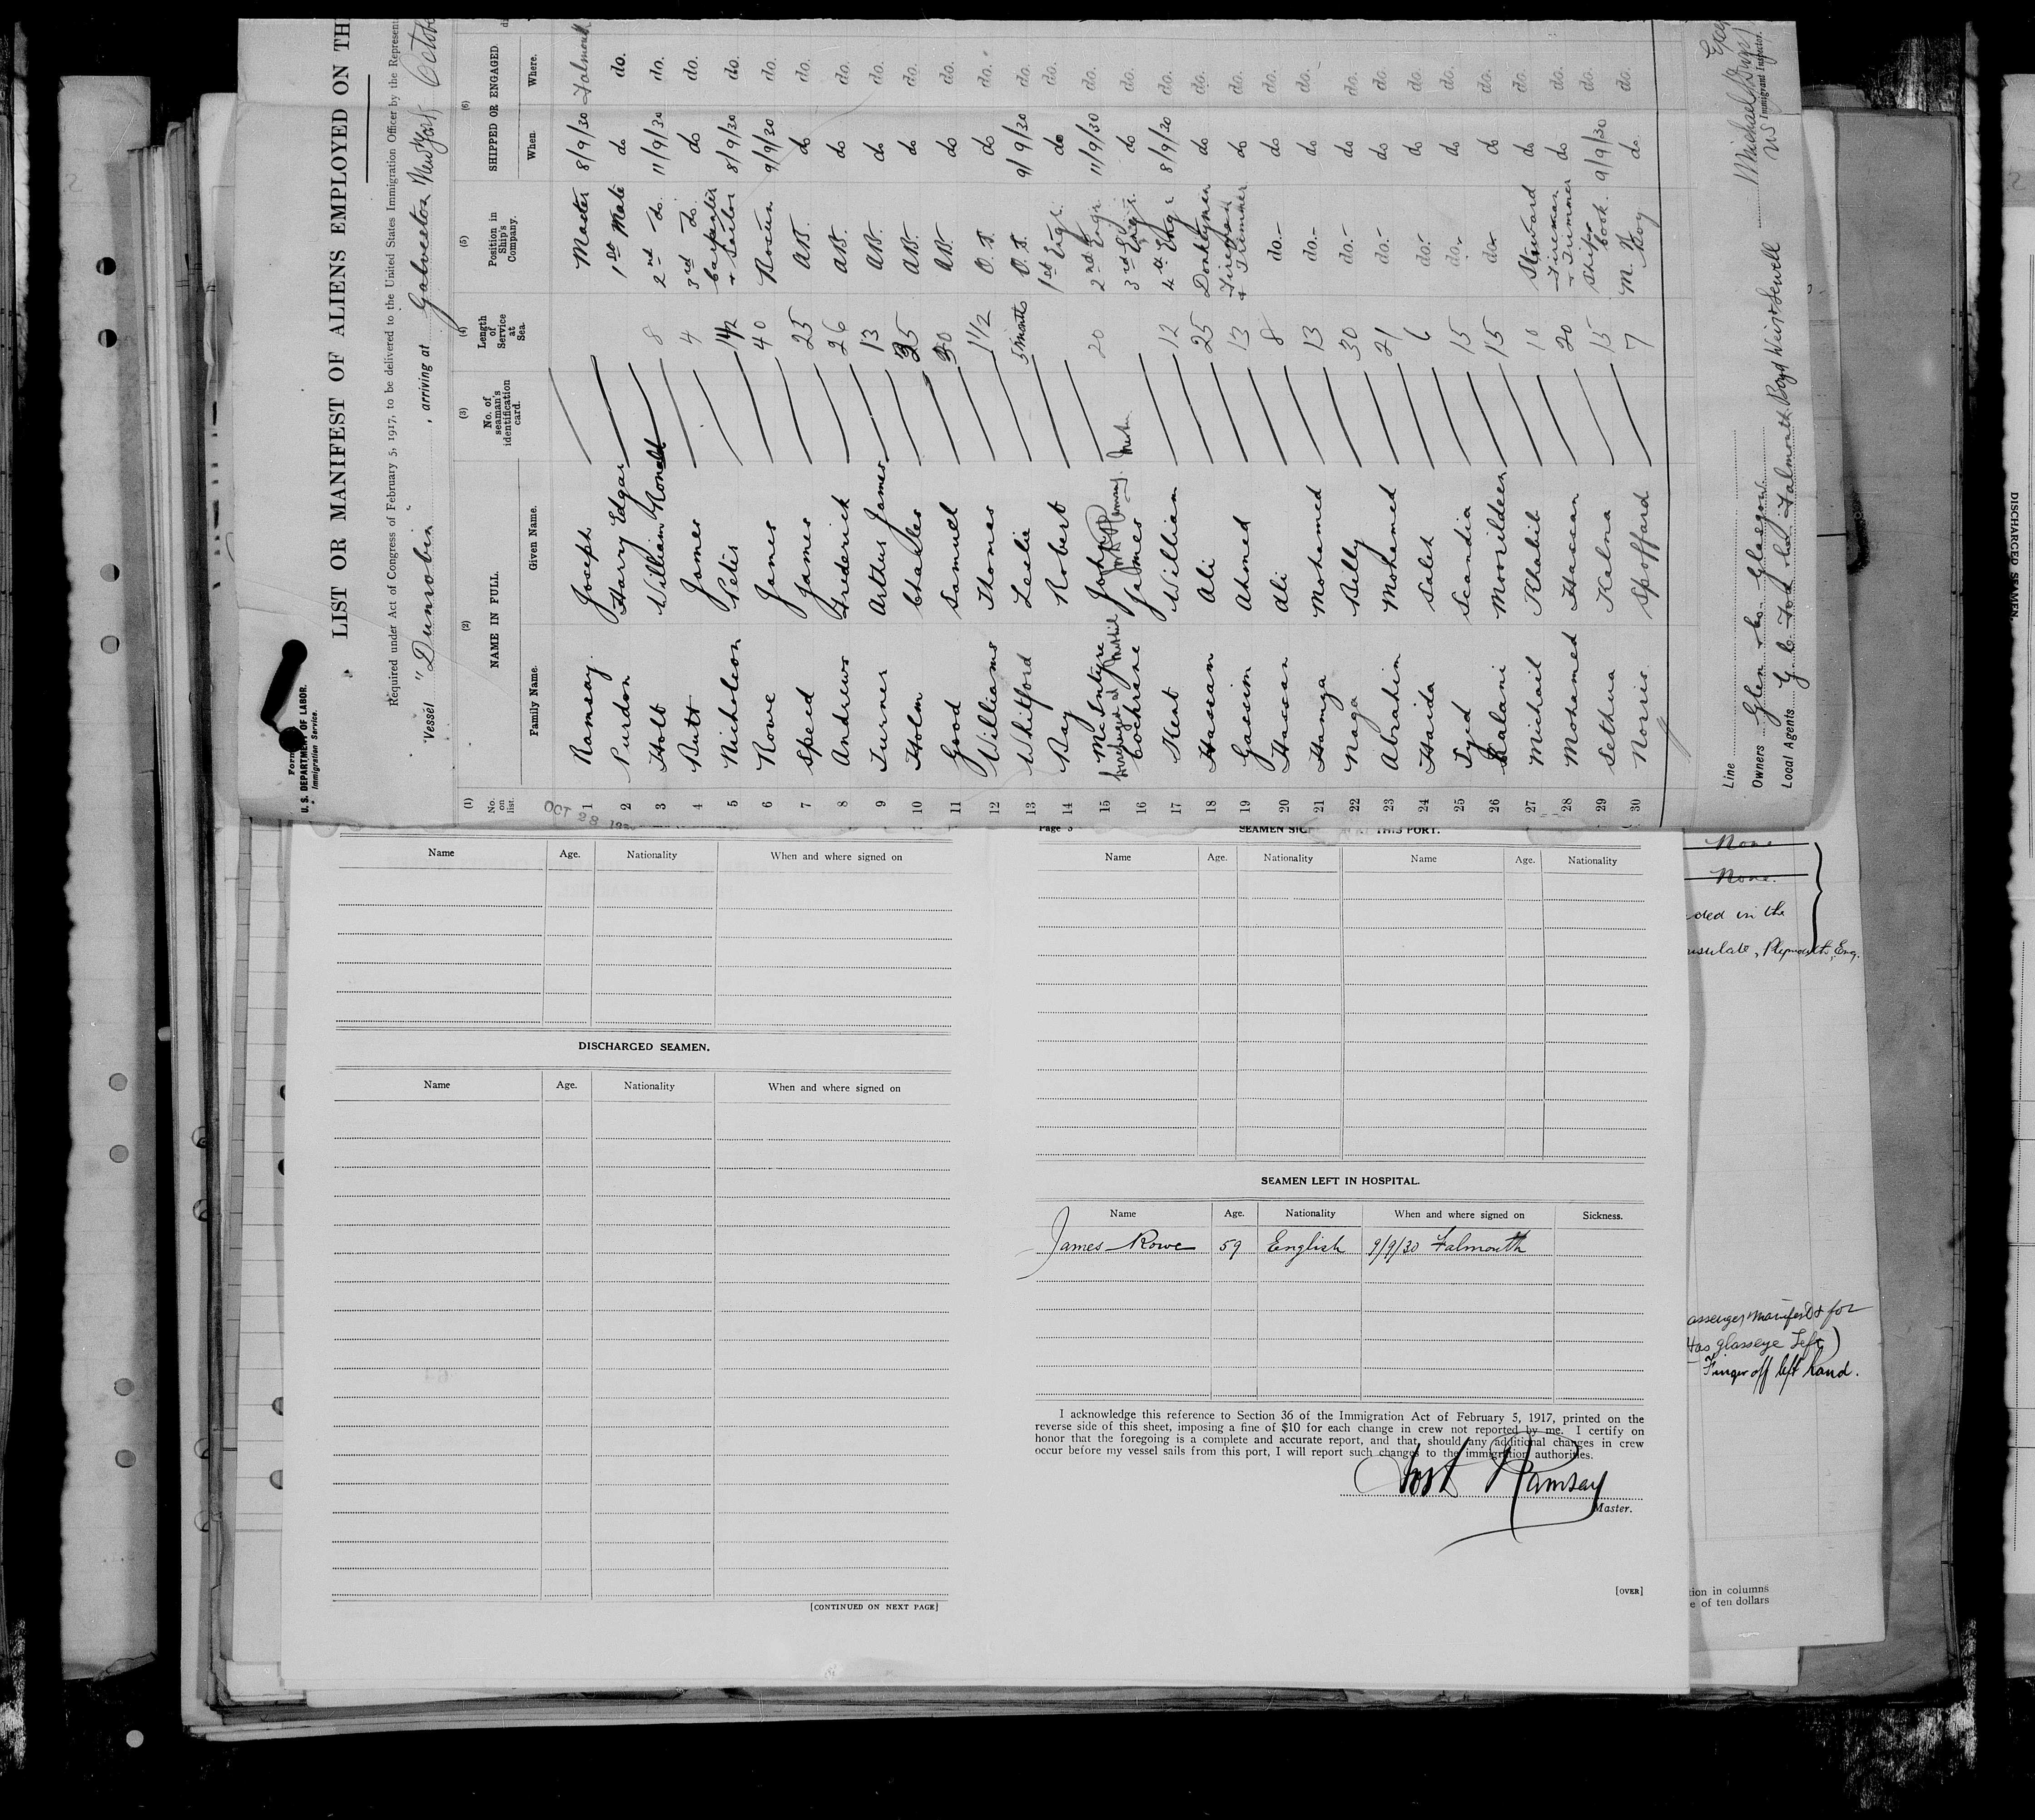 Form
U. S. DEPARTMENT OF LABOR.
Immigration Service.
LIST OR MANIFEST OF ALIENS EMPLOYED ON TH
Required under Act of Congress of February 5, 1917, to be delivered to the United States Immigration Officer by the Represent
Vessel "Dunrobin", arriving at Galveston New York Octobe
(1) (2) (3) (4) (5) (6)
No. on list. NAME IN FULL. No. of seaman's identification card. Length of Service at Sea. Position in Ship's Company. SHIPPED OR ENGAGED.
Family Name. Given Name. When. Where.
OCT 28
1 Ramsay Joseph Master 8/9/30 Falmouth
2 Purdon Harry Edgar 1st Mate do do.
3 Holt William Ronald 8 2nd do. 11/9/30 do.
4 Butt James 4 3rd do. do do.
5 Nicholson Peter 1 1/2 Carpenter + Sailor 8/9/30 do.
6 Rowe James 40 Bosun 9/9/30 do.
7 Speed James 25 AB. do do.
8 Andrews Frederick 26 AB. do do.
9 Turner Arthur James 13 AB. do do.
10 Holm Charles 35 AB. do do.
11 Good Samuel 30 AB. do do.
12 Williams Thomas 1 1/2 O.S. do do.
13 Whitford Leslie 5 months O.S. 9/9/30 do.
14 Ray Robert 1st Engr. do do.
15 McIntyre John 20 2nd Engr 11/9/30 do.
16 Cochrane James 3rd Engr. do do.
17 Kent William 12 4th Engr 8/9/30 do.
18 Hassan Ali 25 Donkeyman do do.
19 Gassim Ahmed 13 Fireman + Trimmer do do.
20 Hassan Ali 8 do.- do do.
21 Hamza Mohamed 13 do.- do do.
22 Naga Billy 30 do.- do do.
23 Abrahim Mohamed 21 do.- do do.
24 Haida Saleh 6 do.- do do.
25 Syed Scandia 15 do.- do do.
26 Kalani Moosildeen 15 do- do do.
27 Michail Khalil 10 Steward do do.
28 Mohamed Hassan 20 Fireman + Trimmer do do.
29 Sethna Kalna 15 Ship's Cook. 9/9/30 do.
30 Norris Spofford 7 M. R. Boy do do.
Line
Owners Glen & Co. Glasgow
Local Agents G. C. Fox & Co. Falmouth Boyd Weir & Sewell
Michael
Immigrant Inspector.
Name Age. Nationality When and where signed on
DISCHARGED SEAMEN.
Name Age. Nationality When and where signed on
[CONTINUED ON NEXT PAGE]
Page 3
SEAMEN SIG THIS PORT.
Name Age. Nationality Name Age. Nationality
SEAMEN LEFT IN HOSPITAL.
Name Age. Nationality When and where signed on Sickness.
James Rowe 59 English 9/9/30 Falmouth
I acknowledge this reference to Section 36 of the Immigration Act of February 5, 1917, printed on the
reverse side of this sheet, imposing a fine of $10 for each change in crew not reported by me. I certify on
honor that the foregoing is a complete and accurate report, and that, should any additional changes in crew
occur before my vessel sails from this port, I will report such changes to the immigration authorities.
Josh Ramsay
Master.
[OVER]
None
None.
ded in the
nsulate, Plymouth, Eng.
assenger manifest for
Has glass eye Left)
Finger off left hand.
tion in columns
e of ten dollars
DISCHARGED SEAMEN.